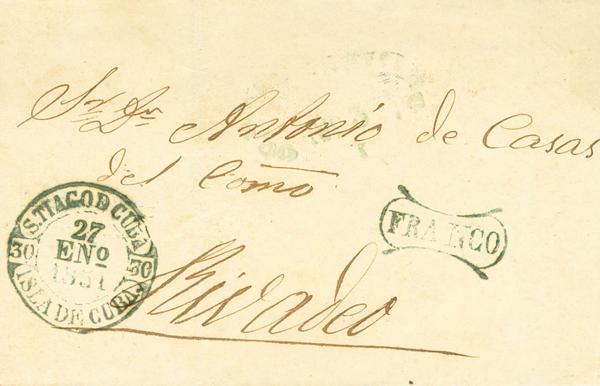 Sr. Dn. Antonio de Casas
del Como
Rivadeo
FRANCO
S.TIAGO D CUBA
30 27 30
ENº
1851
ISLA DE CUBA